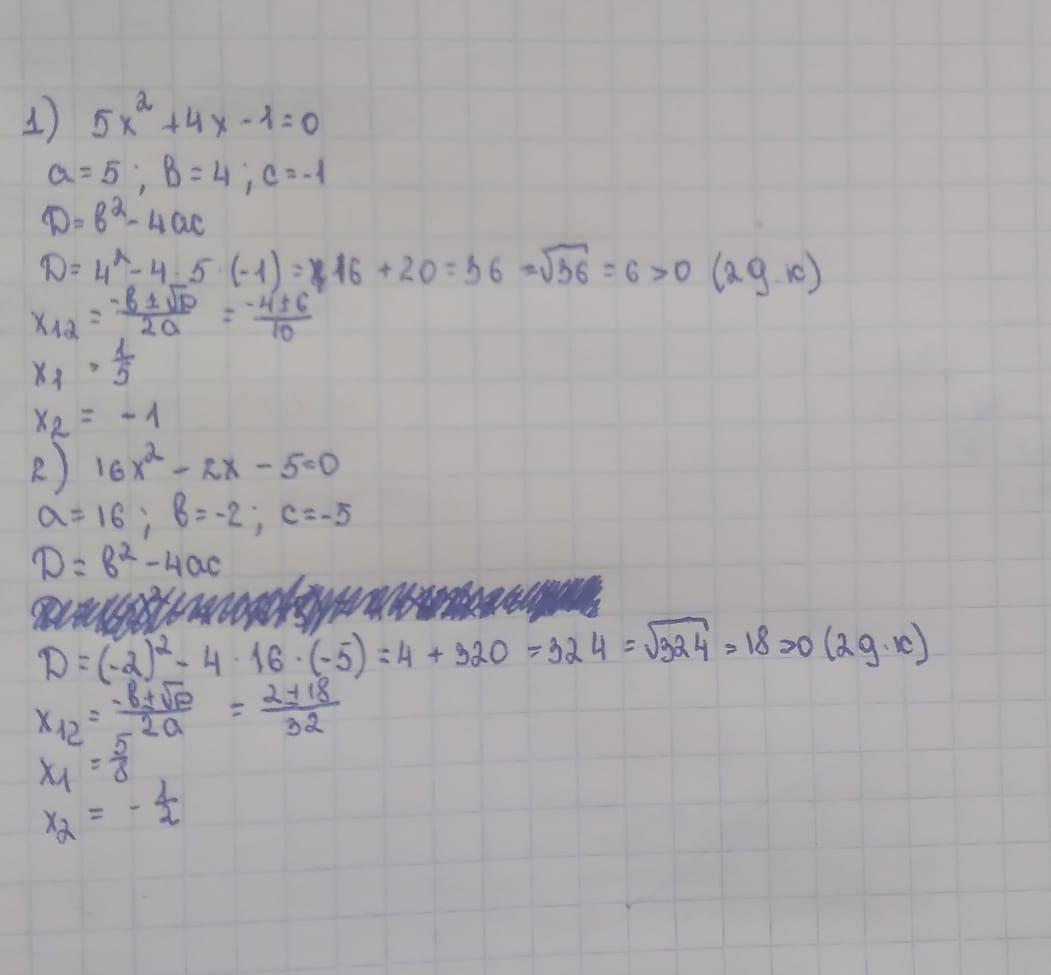 1) 5x² + 4x - 1 = 0
a = 5; в = 4; c = -1
D = в² - 4ac
D = 4² - 4 · 5 · (-1) = 16 + 20 = 36 = √36 = 6 > 0 (2 д.к)
x₁₂ = (-в ± √D)/(2a) = (-4 ± 6)/10
x₁ = 1/5
x₂ = -1
2) 16x² - 2x - 5 = 0
a = 16; в = -2; c = -5
D = в² - 4ac
D = (-2)² - 4 · 16 · (-5) = 4 + 320 = 324 = √324 = 18 > 0 (2 д.к)
x₁₂ = (-в ± √D)/(2a) = (2 ± 18)/32
x₁ = 5/8
x₂ = -1/2